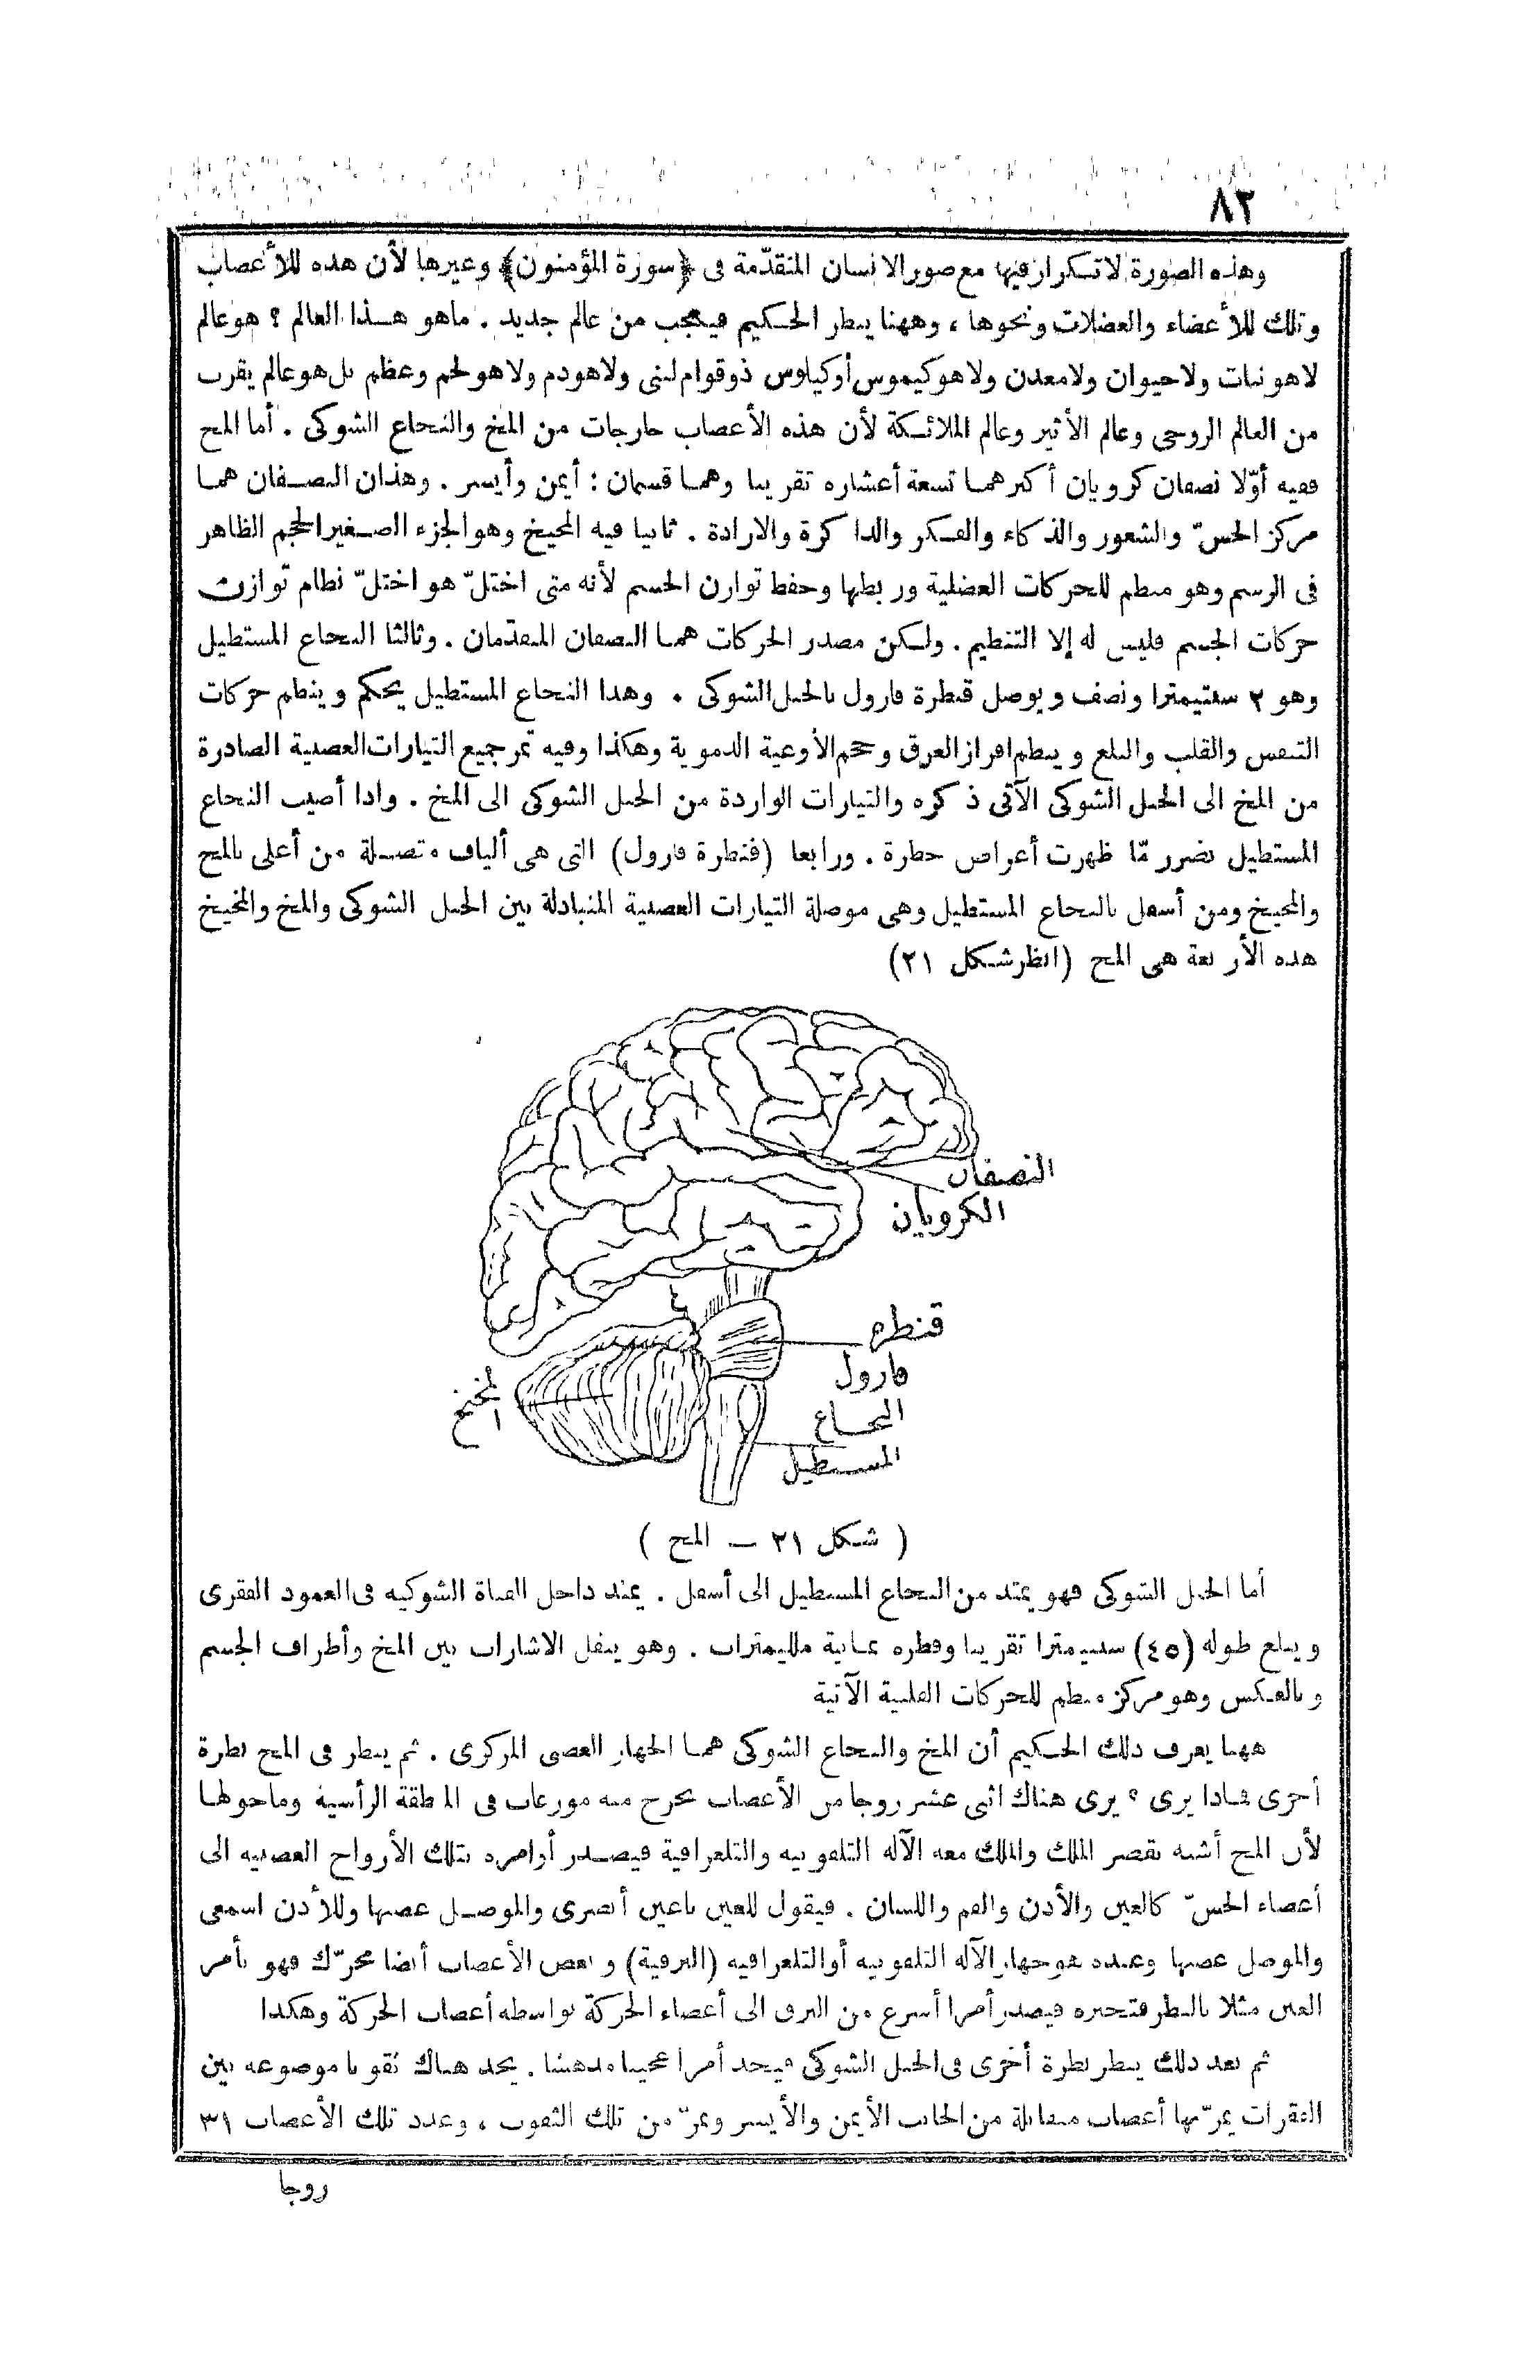 ٨٢
وهذه الصورة لا تكرار فيها مع صور الانسان المتقدّمة فى ﴿سورة المؤمنون﴾ وغيرها لأن هذه للأعصاب
وتلك للأعضاء والعضلات ونحوها ، وههنا ينظر الحكيم فيعجب من عالم جديد . ماهو هذا العالم ؟ هو عالم
لا هو نبات ولا حيوان ولا معدن ولا هو كيموس أو كيلوس ذو قوام لبنى ولا هو دم ولا هو لحم وعظم بل هو عالم يقرب
من العالم الروحى وعالم الأثير وعالم الملائكة لأن هذه الأعصاب خارجات من المخ والنخاع الشوكى . أما المخ
ففيه أوّلا نصفان كرويان أكبرهما تسعة أعشاره تقريبا وهما قسمان : أيمن وأيسر . وهذان النصفان هما
مركز الحسّ والشعور والذكاء والفكر والذاكرة والارادة . ثانيا فيه المخيخ وهو الجزء الصغير الحجم الظاهر
فى الرسم وهو منظم للحركات العضلية وربطها وحفظ توازن الجسم لأنه متى اختلّ هو اختلّ نظام توازن
حركات الجسم فليس له إلا التنظيم . ولكن مصدر الحركات هما النصفان المتقدّمان . وثالثا النخاع المستطيل
وهو ٢ سنتيمترا ونصف ويوصل قنطرة فارول بالحبل الشوكى . وهذا النخاع المستطيل يحكم وينظم حركات
التنفس والقلب والبلع وينظم افراز العرق وحجم الأوعية الدموية وهكذا وفيه تمرّ جميع التيارات العصبية الصادرة
من المخ الى الحبل الشوكى الآتى ذكره والتيارات الواردة من الحبل الشوكى الى المخ . واذا أصيب النخاع
المستطيل بضرر مّا ظهرت أعراض خطرة . ورابعا (قنطرة فارول) التى هى ألياف متصلة من أعلى بالمخ
والمخيخ ومن أسفل بالنخاع المستطيل وهى موصلة التيارات العصبية المتبادلة بين الحبل الشوكى والمخ والمخيخ
هذه الأربعة هى المخ (انظر شكل ٢١)
النصفان
الكرويان
قنطره
فارول
المخيخ
النخاع
المستطيل
( شكل ٢١ — المخ )
أما الحبل الشوكى فهو يمتد من النخاع المستطيل الى أسفل . يمتد داخل القناة الشوكية فى العمود الفقرى
ويبلغ طوله (٤٥) سنتيمترا تقريبا وقطره ثمانية ملليمترات . وهو ينقل الاشارات بين المخ وأطراف الجسم
وبالعكس وهو مركز منظم للحركات القلبية الآتية
ههنا يعرف ذلك الحكيم أن المخ والنخاع الشوكى هما الجهاز العصبى المركزى . ثم ينظر فى المخ نظرة
أخرى فماذا يرى ؟ يرى هناك اثنى عشر زوجا من الأعصاب تخرج منه موزعات فى المنطقة الرأسية وماحولها
لأن المخ أشبه بقصر الملك والملك معه الآله التلفونيه والتلغرافية فيصدر أوامره بتلك الأرواح العصبيه الى
أعضاء الحسّ كالعين والأذن والفم واللسان . فيقول للعين ياعين أبصرى والموصل عصبها وللأذن اسمعى
والموصل عصبها وعنده هو جهاز الآله التلفونيه أو التلغرافيه (البرقية) وبعض الأعصاب أيضا محرّك فهو يأمر
العين مثلا بالنظر فتخبره فيصدر أمرا أسرع من البرق الى أعضاء الحركة بواسطه أعصاب الحركة وهكذا
ثم بعد ذلك ينظر نظرة أخرى فى الحبل الشوكى فيجد أمرا عجيبا مدهشا . يجد هناك ثقوبا موضوعه بين
الفقرات يمرّ بها أعصاب متقابلة من الجانب الأيمن والأيسر وتمرّ من تلك الثقوب ، وعدد تلك الأعصاب ٣١
زوجا